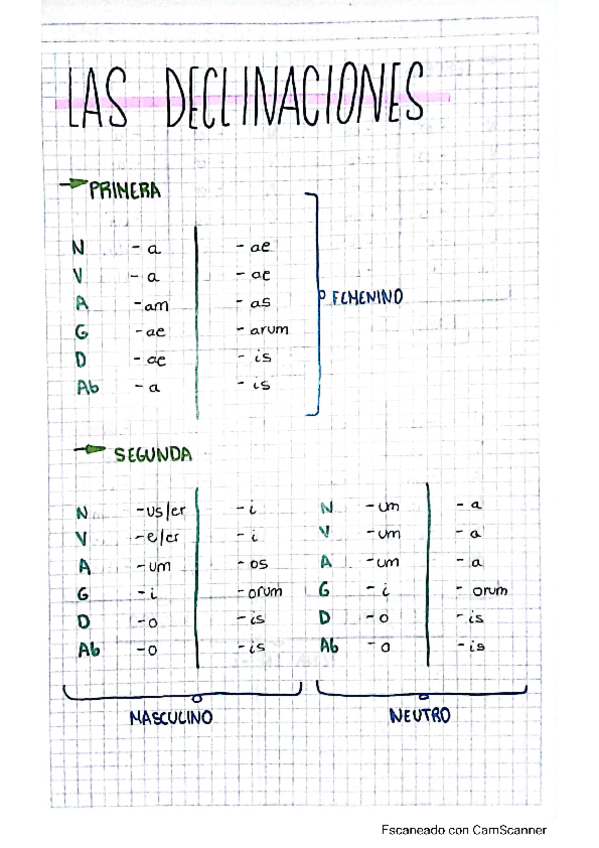 LAS DECLINACIONES
PRIMERA
N -a -ae
V -a -ae
A -am -as
G -ae -arum
D -ae -is
Ab -a -is
FEMENINO
SEGUNDA
N -us/er -i N -um -a
V -e/er -i V -um -a
A -um -os A -um -a
G -i -orum G -i -orum
D -o -is D -o -is
Ab -o -is Ab -o -is
MASCULINO NEUTRO
Escaneado con CamScanner